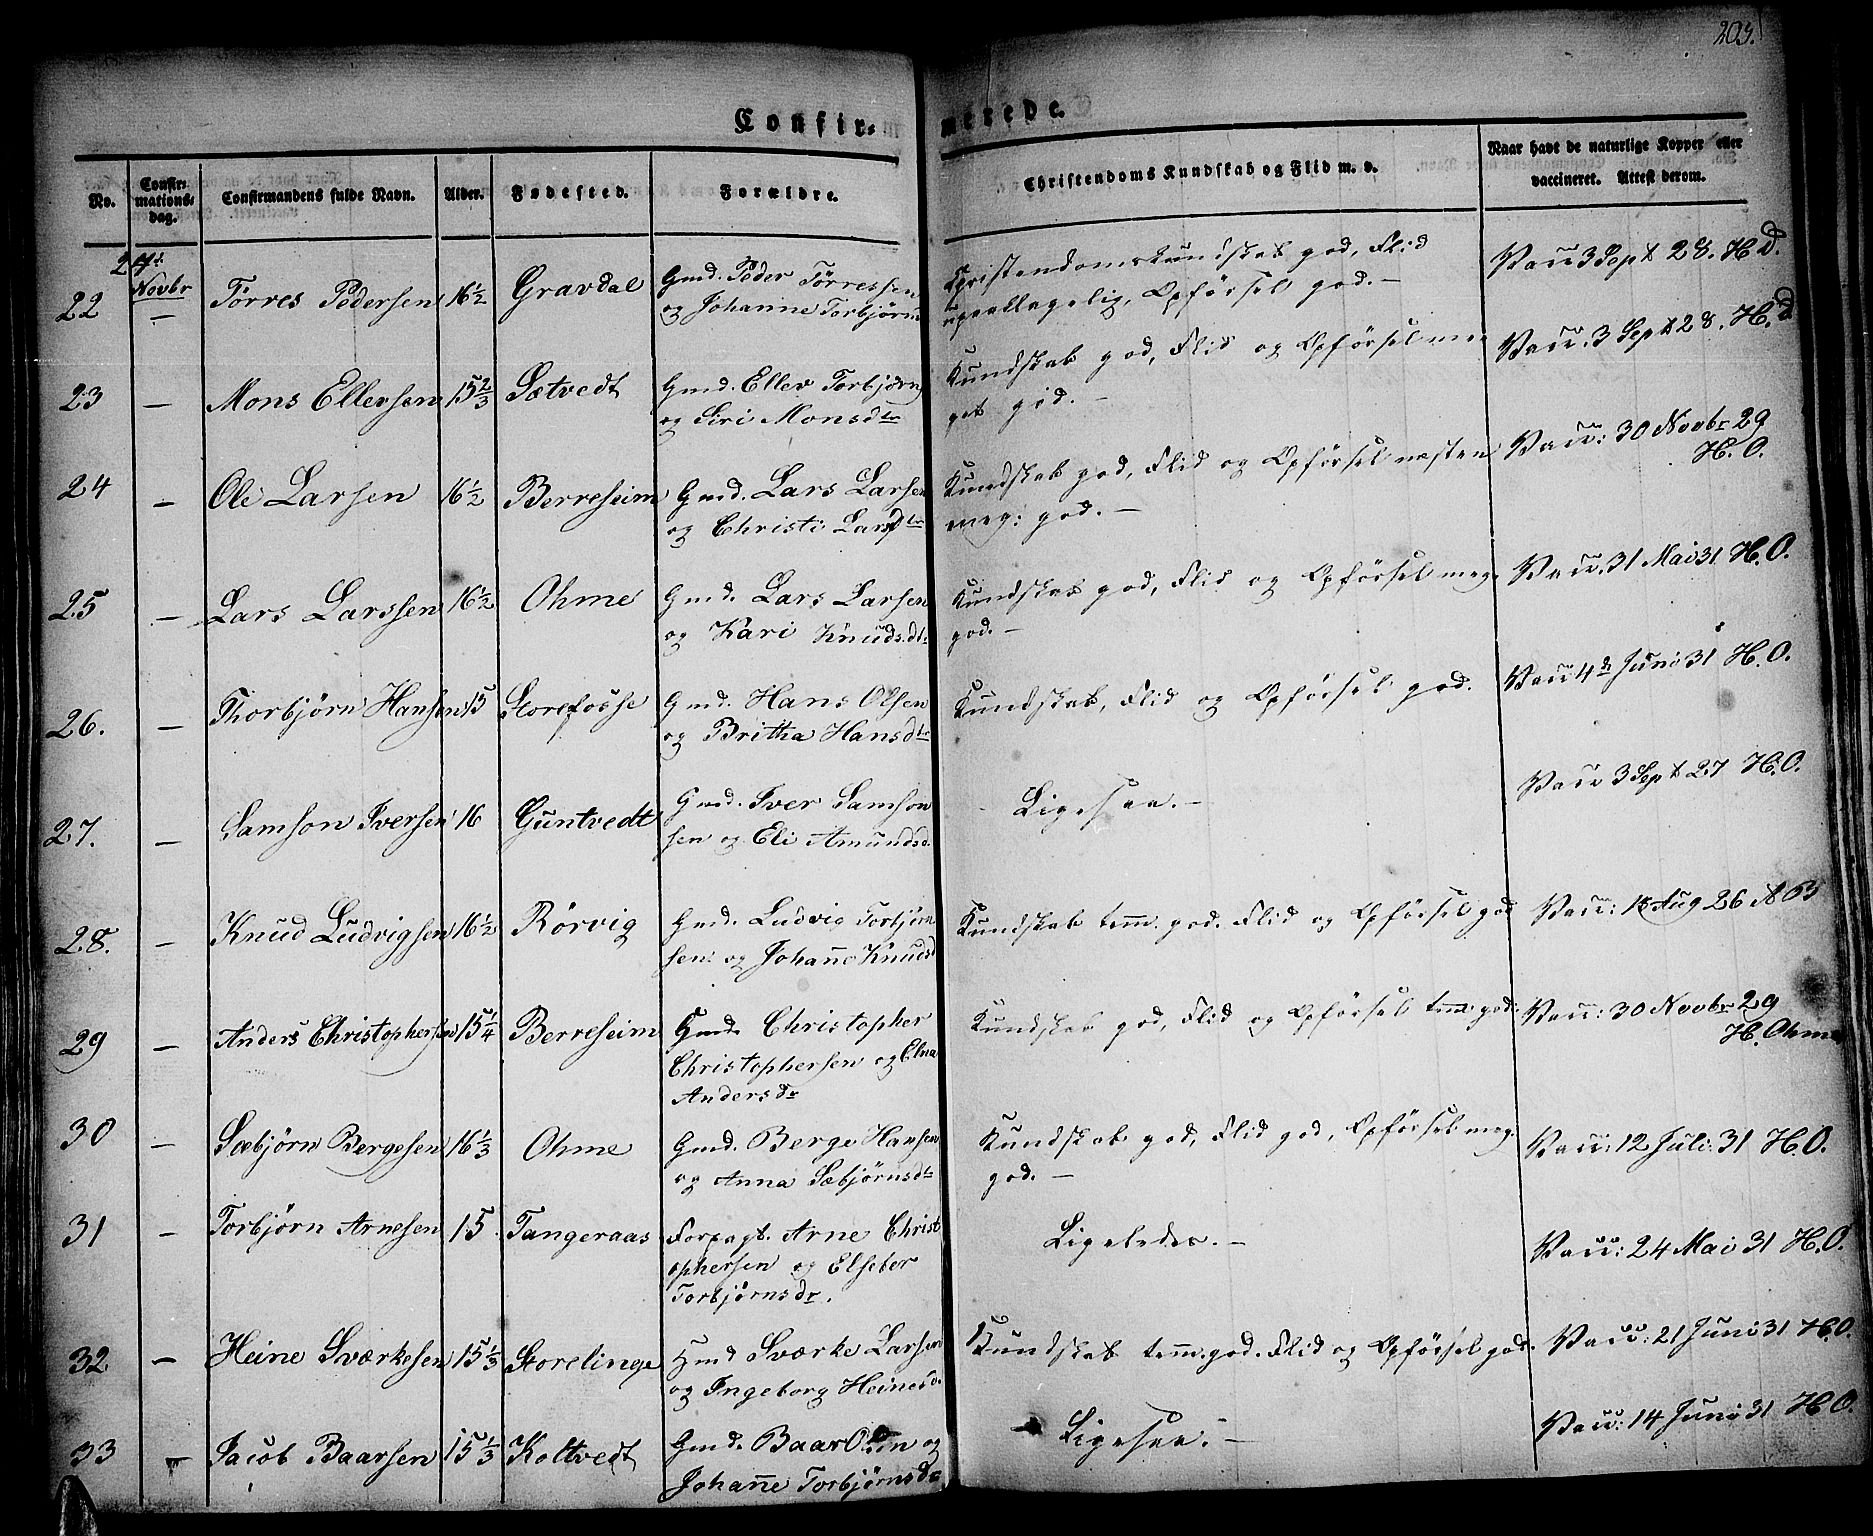 203.
Confir-
merede.
No.
Confir-
mations-
dag.
Confirmandens fulde Navn.
Alder.
Fødested.
Forældre.
Christendoms Kundskab og Flid m. v.
Naar havt de naturlige Kopper eller
vaccineret. Attest derom.
Novbr
22 — Törres Pedersen 16½ Gravdal Gmd. Peder Törressen
og Johanne Torbjörnsd
Christendomskundskab god, Flid
upaaklagelig, Opförsel god.—
Vacc 3 Sept 28. H D.
23 — Mons Ellersen 15⅔ Sætvedt Gmd. Eller Torbjörns
og Siri Monsdtr
Kundskab god, Flid og Opförsel me-
get god.—
Vacc. 3 Sept 28. H. D
24 — Ole Larsen 16½ Berreheim Gmd. Lars Larsen
og Christi Larsdtr
Kundskab god, Flid og Opförsel næsten
meg: god.—
Vacc: 30 Novbr 29
H. O.
25 — Lars Larssen 16½ Ohme Gmd. Lars Larsen
og Kari Knudsdtr
Kundskab god, Flid og Opförsel meg.
god.—
Vacc. 31 Mai 31 H. O.
26. — Thorbjörn Hansen 15 Storefosse Gmd. Hans Olsen
og Britha Hansdtr
Kundskab, Flid og Opförsel god.
Vacc 4de Juni 31 H. O.
27. — Samson Iversen 16 Guntvedt Gmd. Iver Samson
sen og Eli Amundsd.
Ligesaa.—
Vacc 3 Sept 27 H. O.
28. — Knud Ludvigsen 16½ Rörvig Gmd. Ludvig Torbjörn
sen og Johanne Knudsd
Kundskab tem. god. Flid og Opförsel god
Vacc: 15 Aug 26 A B
29 — Anders Christophersen 15¼ Berreheim Hmd. Christopher
Christophersen og Elna
Andersdr
Kundskab god, Flid og Opförsel tem: god.
Vacc: 30 Novbr 29
H. Ohme
30 — Sæbjörn Bergesen 16⅓ Ohme Gmd. Berge Hansen
og Anna Sæbjörnsdtr
Kundskab god, Flid god, Opförsel meg.
god.—
Vacc: 12 Juli: 31 H. O.
31 — Torbjörn Arnesen 15 Tangeraas Forpagt. Arne Christ
ophersen og Elseber
Torbjörnsdr.
Ligeledes.—
Vacc: 24 Mai 31 H. O.
32 — Heine Sværkesen 15⅓ Storelinge Hmd Sværke Larsen
og Ingeborg Heinesd.
Kundskab tem. god. Flid og Opförsel god.
Vacc: 21 Juni 31 H. O.
33 — Jacob Baarsen 15⅓ Koltvedt Gmd. Baar Olsen og
Johanne Torbjörnsdr
Ligesaa.—
Vacc: 14 Juni 31 H. O.